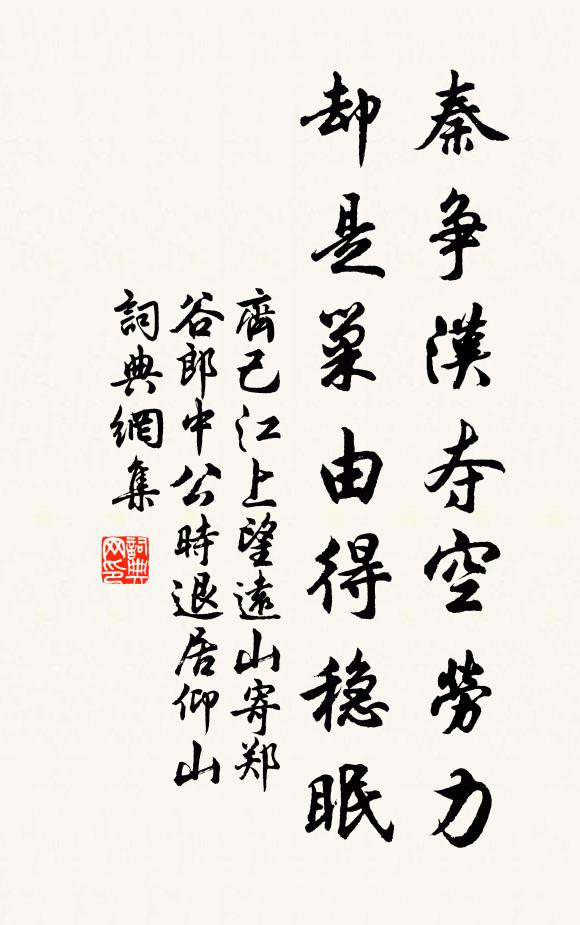 秦争漢夺空勞力
却是巢由得稳眠
齊己江上望遠山寄郑
谷郎中公時退居仰山
詞典網集
詞典网印